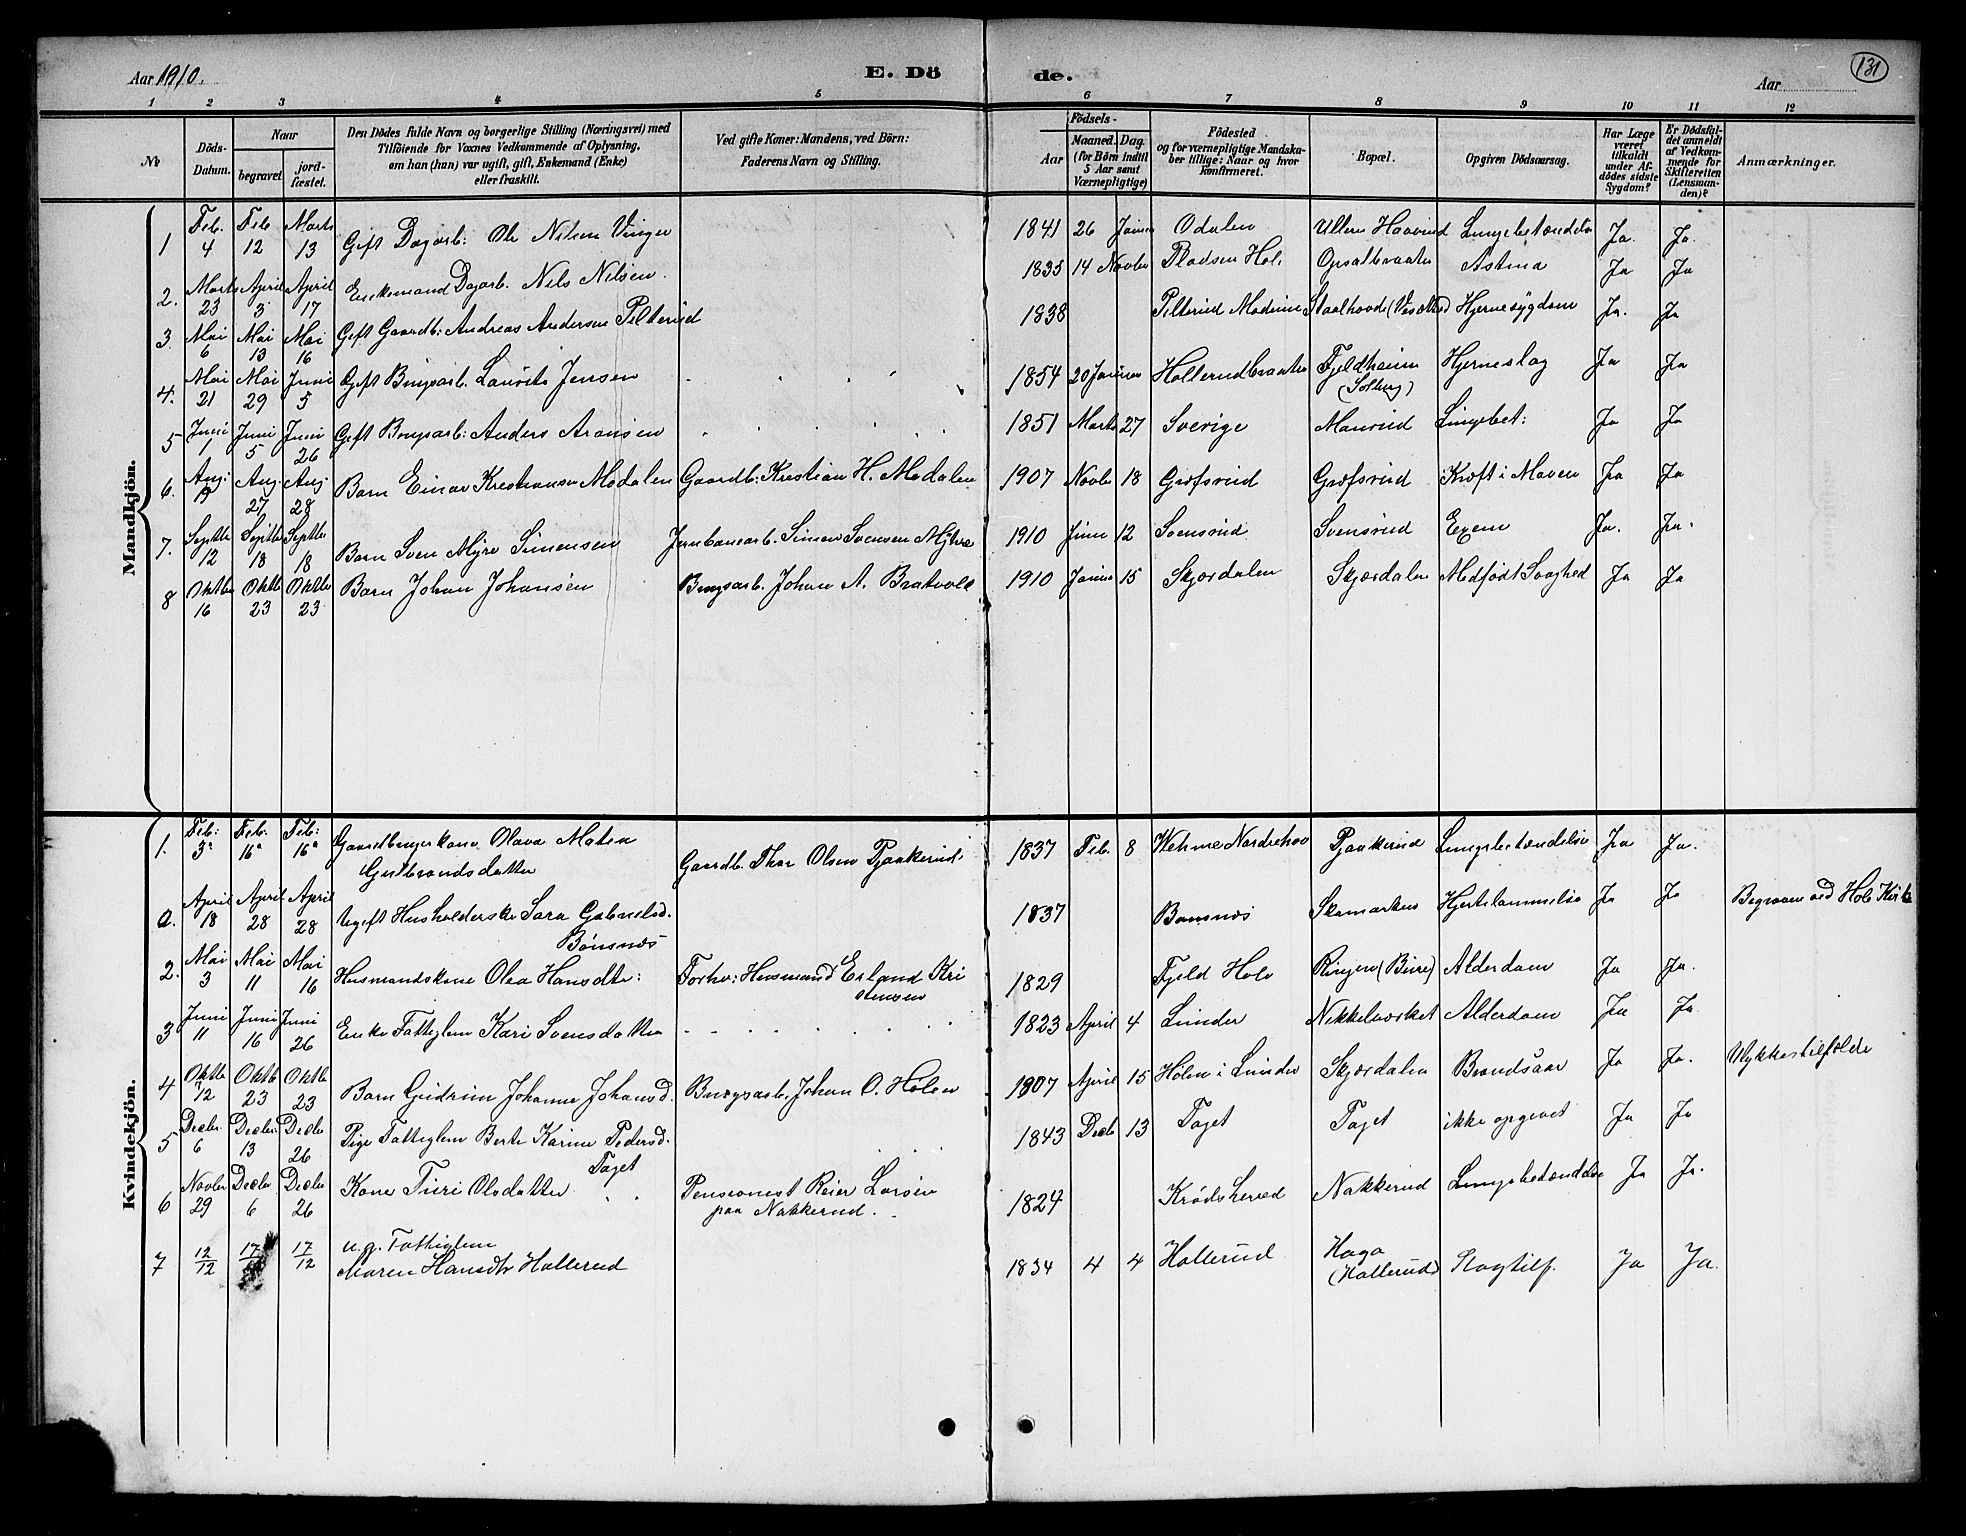 Aar 1910.
E. Dö de.
Aar
131
1 2 3 4 5 6 7 8 9 10 11 12
No
Döds-Datum.
Naar
begravet
jordfæstet.
Den Dödes fulde Navn og borgerlige Stilling (Næringsvei) med
Tilföiende for Voxnes Vedkommende af Oplysning,
om han (hun) var ugift, gift, Enkemand (Enke)
eller fraskilt.
Ved gifte Koner: Mandens, ved Börn:
Faderens Navn og Stilling.
Födsels-
Aar
Maaned. Dag.
(for Börn indtil
5 Aar samt
Værnepligtige)
Födested
og for værnepligtige Mandska-
ber tillige: Naar og hvor
konfirmeret.
Bopæl.
Opgiven Dödsaarsag.
Har Læge
været
tilkaldt
under Af-
dödes sidste
Sygdom?
Er Dödsfal-
det anmeldt
af Vedkom-
mende for
Skifteretten
(Lensman-
den)?
Anmærkninger.
Mandkjön.
1 Feb. 4 Feb 12 Marts 13 Gift Dagarb: Ole Nilsen Vinger 1841 26 Januar Odalen Ullern Haavind Lungebetændelse Ja. Ja.
2. Marts 23 April 3 April 17 Enkemand Dagarb. Nils Nilsen. 1835 14 Novbr Pladsen Hol. Opsalbraaten Astma Ja Ja
3. Mai 6 Mai 13 Mai 16 Gift Gaardb: Andreas Andersen Pilterud 1838 Pilterud Modum Hjernesygdom Ja. Ja
4. Mai 21 Mai 29 Juni 5 Gift Brugsarb. Laurits Jensen 1854 20 Januar Hollerudbraaten Fjeldheim (Solberg) Hjerneslag Ja Ja
5 Juni 1 Juni 5 Juni 26 Gift Brugsarb: Anders Aronsen 1851 Marts 27 Sverige Maurud Lungebet: Ja Ja
6. Aug: 19 Aug. 27 Aug. 28 Barn Einar Kristiansen Modalen Gaardb: Kristian H. Modalen 1907 Novbr 18 Grøfsrud Grøfsrud Kræft i Maven Ja Ja
7. Septbr 12 Septbr 18 Septbr 18 Barn Sven Myre Simensen Jernbanearb. Simen Svensen 1910 Juni 12 Svensrud Svensrud Exem Ja. Ja.
8 Oktbr 16 Oktbr 23 Oktbr 23 Barn Johan Johansen Brugsarb. Johan A. Bratvold 1910 Januar 15 Skjærdalen Skjærdalen Medfødt Svaghed Ja Ja
Kvindekjön.
1. Feb: 3 Feb: 16 Feb: 16 Gaardbrugerkone Olava Maten
Gulbrandsdatter Gaardb. Thor Olsen Pjaakerud 1837 Feb. 8 Wehme Norderhov Pjaakerud Lungebetændelse Ja Ja.
a. April 18 April 28 April 28 Ugift Husholderske Sara Gabrielsd.
Bönsnæs 1837 Bønsnæs Skamarken Hjertelammelse Ja Ja Begraven ved Hole Kirke
2. Mai 3 Mai 11 Mai 16 Husmandskone Olea Hansdtr: Forhv: Husmand Erland Kri
stensen 1829 Fjeld Hole Ringen (Bure) Alderdom Ja Ja.
3 Juni 11 Juni 16 Juni 26 Enke Fattiglem Kari Svensdatter 1823 April 4 Lunder Nikkelværket Alderdom Ja Ja
4 Oktbr 12 Oktbr 23 Oktbr 23 Barn Gudrun Johanne Johansd. Brugsarb. Johan O. Hølen 1907 April 15 Hølen i Lunder Skjærdalen Brandsaar Ja Ja. Ulykkestilfælde
5 Decbr. 6 Decbr 13 Decbr 26 Pige Fattiglem Berte Karine Pedersd.
Taget 1843 Decb 13 Taget Taget ikke opgivet Ja Ja
6 Novbr 29 Decbr 6 Decbr 26 Kone Turi Olsdatter Pensionist Reier Larsen
paa Nakkerud. 1824 Krødsherred Nakkerud Lungebetændelse Ja Ja.
7 12/12 17/12 17/12 u.g. Fattiglem
Maren Hansdtr Hollerud 1834 4 4 Hollerud Haga
(Hollerud) Slagtilf. Ja Ja.